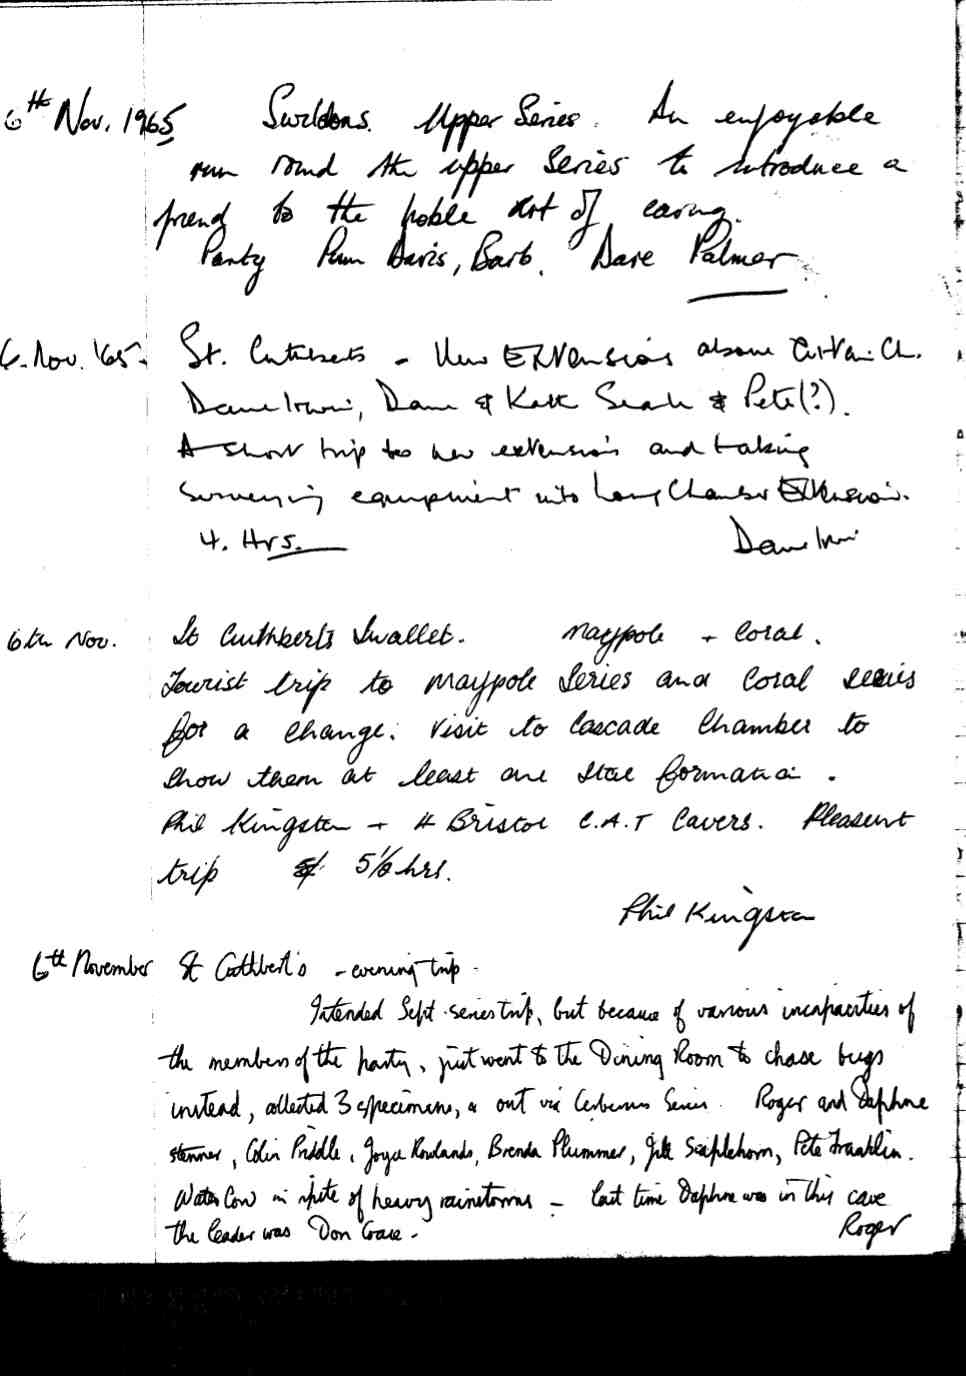 6th Nov. 1965 Swildons. Upper Series. An enjoyable
run round the upper Series to introduce a
friend to the noble art of caving.
Party Pam Davis, Barb. Dave Palmer
6. Nov. '65. St. Cuthberts - New Extension above Curtain Ch.
Dave Irwin, Dave & Kath Searle & Pete(?).
A short trip to new extension and taking
surveying equipment into Long Chamber Extension.
4. Hrs. Dave Irwin
6th Nov. St Cuthberts Swallet. Maypole + Coral.
Tourist trip to Maypole Series and Coral series
for a change. Visit to Cascade Chamber to
show them at least one stal formation.
Phil Kingston + 4 Bristol C.A.T Cavers. Pleasant
trip 5½ hrs.
Phil Kingston
6th November St Cuthbert's - evening trip.
Intended Sept. series trip, but because of various incapacities of
the members of the party, just went to the Dining Room to chase bugs
instead, collected 3 specimens, & out via Cerberus Series. Roger and Daphne
Stenner, Colin Priddle, Joyce Rowlands, Brenda Plummer, Jill Scaplehorn, Pete Franklin.
Water low in spite of heavy rainstorms - last time Daphne was in this cave
the leader was Don Coase.
Roger